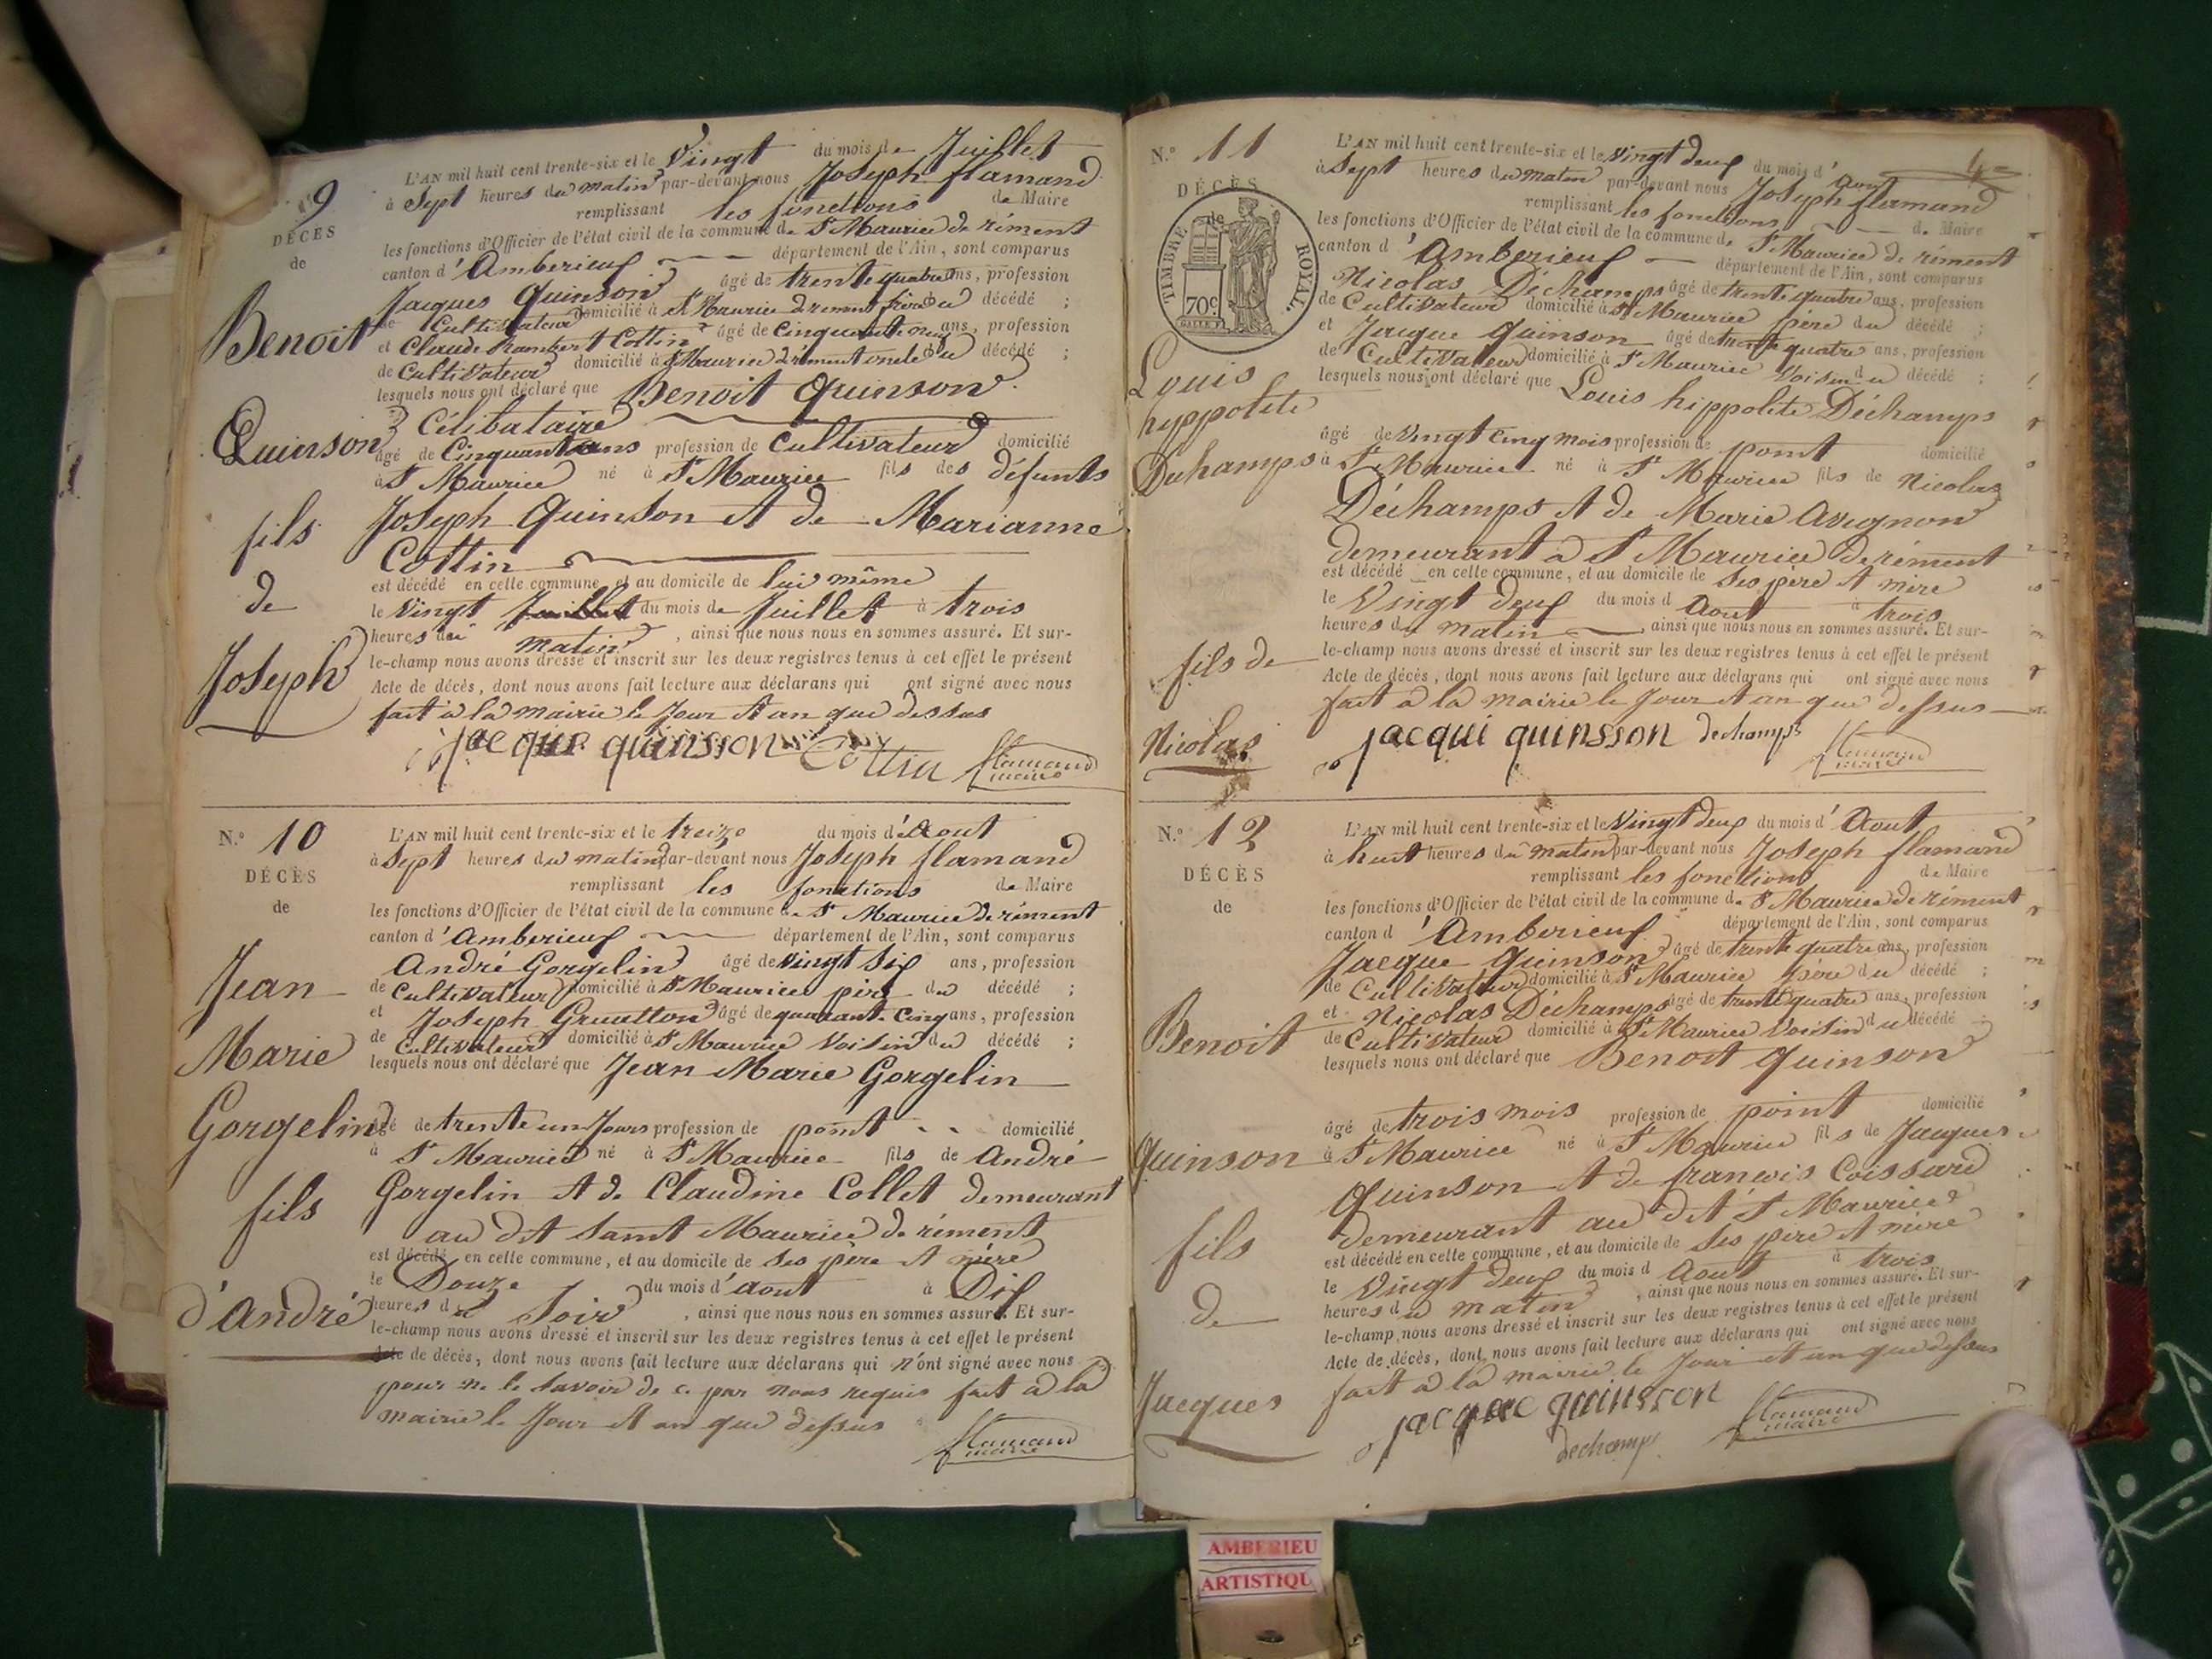 9
DÉCÈS
de
Benoit
Quinson
fils
de
Joseph
L'AN mil huit cent trente-six et le Vingt du mois de Juillet
à Sept heures du matin par-devant nous Joseph flamand
remplissant les fonctions de Maire
les fonctions d'Officier de l'état civil de la commune de St Maurice de rément
canton d'Amberieux département de l'Ain, sont comparus
Jacques Quinson âgé de trente quatre ans, profession
de Cultivateur domicilié à St Maurice de rément frère du décédé ;
et Claude Rambert Cottin âgé de Cinquante neuf ans, profession
de Cultivateur domicilié à St Maurice de rément oncle du décédé ;
lesquels nous ont déclaré que Benoit Quinson
Célibataire
âgé de Cinquante ans profession de Cultivateur domicilié
à St Maurice né à St Maurice fils des défunts
Joseph Quinson et de Marianne
Cottin
est décédé en cette commune, et au domicile de lui même
le Vingt Juillet du mois de Juillet à trois
heures du matin, ainsi que nous nous en sommes assuré. Et sur-
le-champ nous avons dressé et inscrit sur les deux registres tenus à cet effet le présent
Acte de décès, dont nous avons fait lecture aux déclarans qui ont signé avec nous
fait à la mairie le Jour et an que dessus
jacque quinsson Cottin flamand maire
N.° 10
DÉCÈS
de
Jean
Marie
Gorgelin
fils
d'André
L'AN mil huit cent trente-six et le treize du mois d'Aout
à Sept heures du matin par-devant nous Joseph flamand
remplissant les fonctions de Maire
les fonctions d'Officier de l'état civil de la commune de St Maurice de rément
canton d'Amberieux département de l'Ain, sont comparus
André Gorgelin âgé de Vingt Six ans, profession
de Cultivateur domicilié à St Maurice père du décédé ;
et Joseph Gruatton âgé de quarante Cinq ans, profession
de Cultivateur domicilié à St Maurice Voisin du décédé ;
lesquels nous ont déclaré que Jean Marie Gorgelin
âgé de trente un Jours profession de point domicilié
à St Maurice né à St Maurice fils de André
Gorgelin et de Claudine Collet demeurant
au dit Saint Maurice de rément
est décédé en cette commune, et au domicile de Ses père et mère
le Douze du mois d'aout à Dix
heures du Soir, ainsi que nous nous en sommes assuré. Et sur-
le-champ nous avons dressé et inscrit sur les deux registres tenus à cet effet le présent
Acte de décès, dont nous avons fait lecture aux déclarans qui n'ont signé avec nous
pour ne le Savoir de ce par nous requis fait à la
mairie le Jour et an que dessus
flamand maire
N.° 11
DÉCÈS
de
TIMBRE ROYAL
70c
Louis
hyppolite
Duhamps
fils de
Nicolas
4
L'AN mil huit cent trente-six et le Vingt deux du mois d'Aout
à Sept heures du matin par-devant nous Joseph flamand
remplissant les fonctions de Maire
les fonctions d'Officier de l'état civil de la commune de St Maurice de rément
canton d'Amberieux département de l'Ain, sont comparus
Nicolas Déchamps âgé de trente quatre ans, profession
de Cultivateur domicilié à St Maurice père du décédé ;
et Jacque Quinson âgé de trente quatre ans, profession
de Cultivateur domicilié à St Maurice Voisin du décédé ;
lesquels nous ont déclaré que Louis hippolite Déchamps
âgé de Vingt Cinq mois profession de point domicilié
à St Maurice né à St Maurice fils de Nicolas
Déchamps et de Marie Avignon
demeurant à St Maurice de rément
est décédé en cette commune, et au domicile de Ses père et mère
le Vingt deux du mois d Aout à trois
heures du matin ainsi que nous nous en sommes assuré. Et sur-
le-champ nous avons dressé et inscrit sur les deux registres tenus à cet effet le présent
Acte de décès, dont nous avons fait lecture aux déclarans qui ont signé avec nous
fait à la mairie le Jour et an que dessus
jacqui quinsson dechamps flamand maire
N.° 12
DÉCÈS
de
Benoit
Quinson
fils
de
Jacques
L'AN mil huit cent trente-six et le Vingt deux du mois d'Aout
à huit heures du matin par-devant nous Joseph flamand
remplissant les fonctions de Maire
les fonctions d'Officier de l'état civil de la commune de St Maurice de rément
canton d'Amberieux département de l'Ain, sont comparus
Jacque Quinson âgé de trente quatre ans, profession
de Cultivateur domicilié à St Maurice père du décédé ;
et Nicolas Déchamps âgé de trente quatre ans, profession
de Cultivateur domicilié à St Maurice Voisin du décédé
lesquels nous ont déclaré que Benoit Quinson
âgé de trois mois profession de point domicilié
à St Maurice né à St Maurice fils de Jacques
Quinson et de françois Coissard
demeurant au dit St Maurice
est décédé en cette commune, et au domicile de Ses père et mère
le Vingt deux du mois d Aout à trois
heures du matin, ainsi que nous nous en sommes assuré. Et sur-
le-champ nous avons dressé et inscrit sur les deux registres tenus à cet effet le présent
Acte de décès, dont nous avons fait lecture aux déclarans qui ont signé avec nous
fait à la mairie le Jour et an que dessus
jacque quinsson flamand maire
dechamps
AMBERIEU
ARTISTIQU